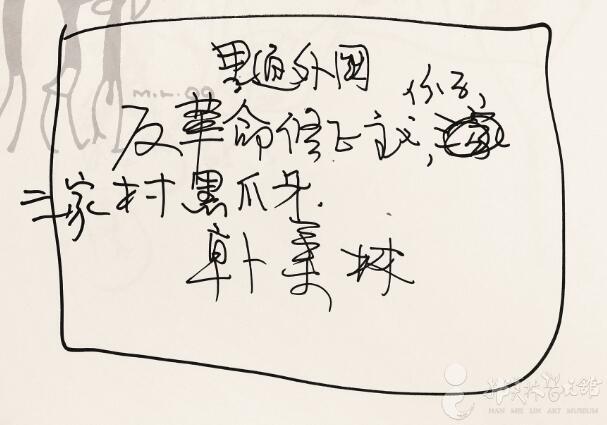 里通外国
份子,
反革命修正主义,
三家村黑爪牙.
韩美林
韩美林艺术馆
HAN MEI LIN ART MUSEUM